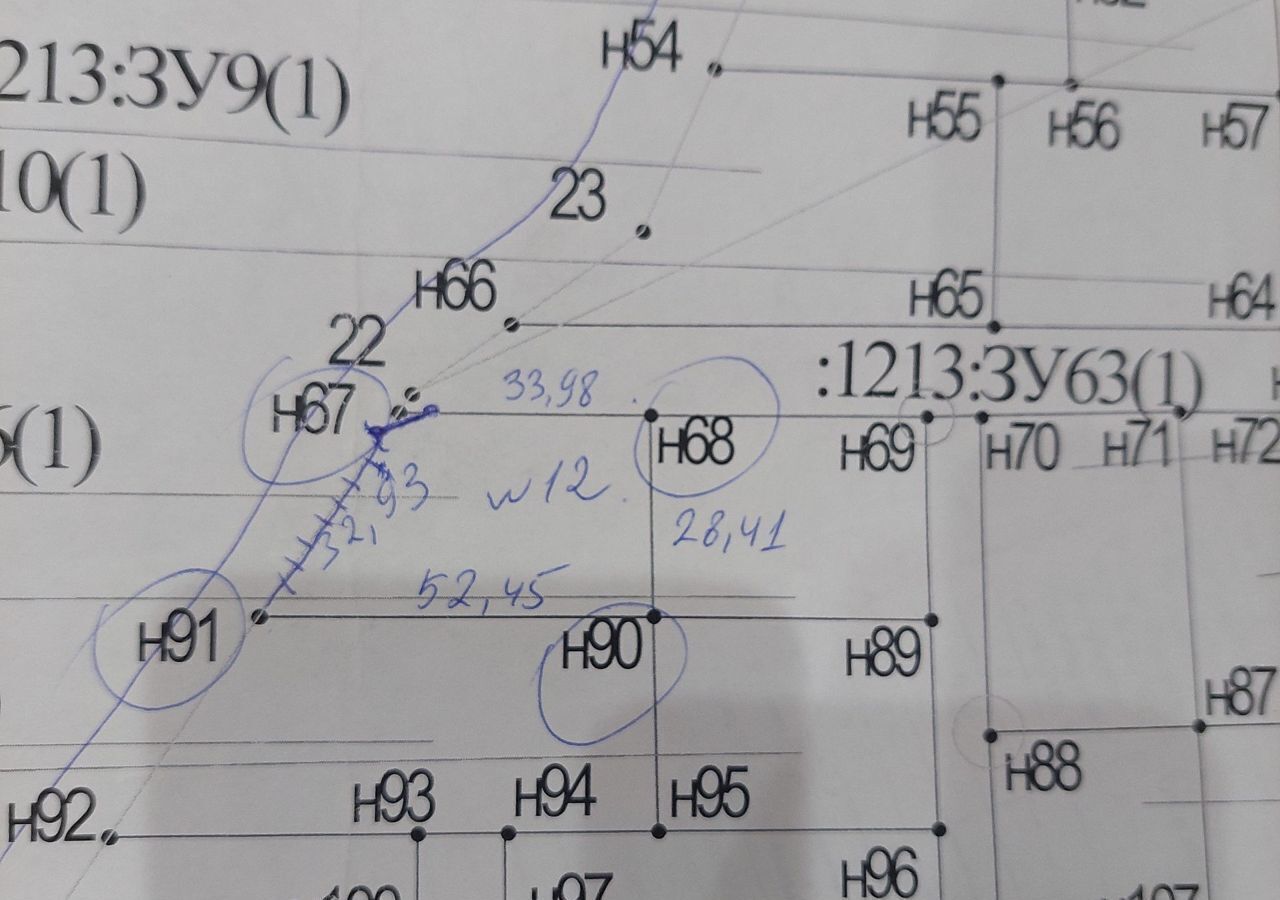 н54
213:ЗУ9(1)
н55
н56
н57
10(1)
23
н66
н65
н64
22
:1213:ЗУ63(1)
33,98
н67
н68
н69
н70
н71
н72
(1)
32,93
w12.
28,41
52,45
н91
н90
н89
н87
н88
н92
н93
н94
н95
н96
н97